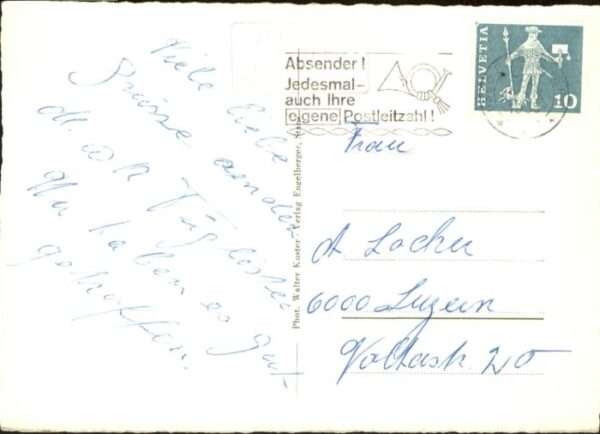 Viele liebe
Grüsse sendet
Wir haben es gut
getroffen.
Absender!
Jedesmal-
auch Ihre
eigene Postleitzahl!
HELVETIA
10
Phot. Walter Kuster - Verlag Engelberger,
Frau
A. Locher
6000 Luzern
Voltastr. 20